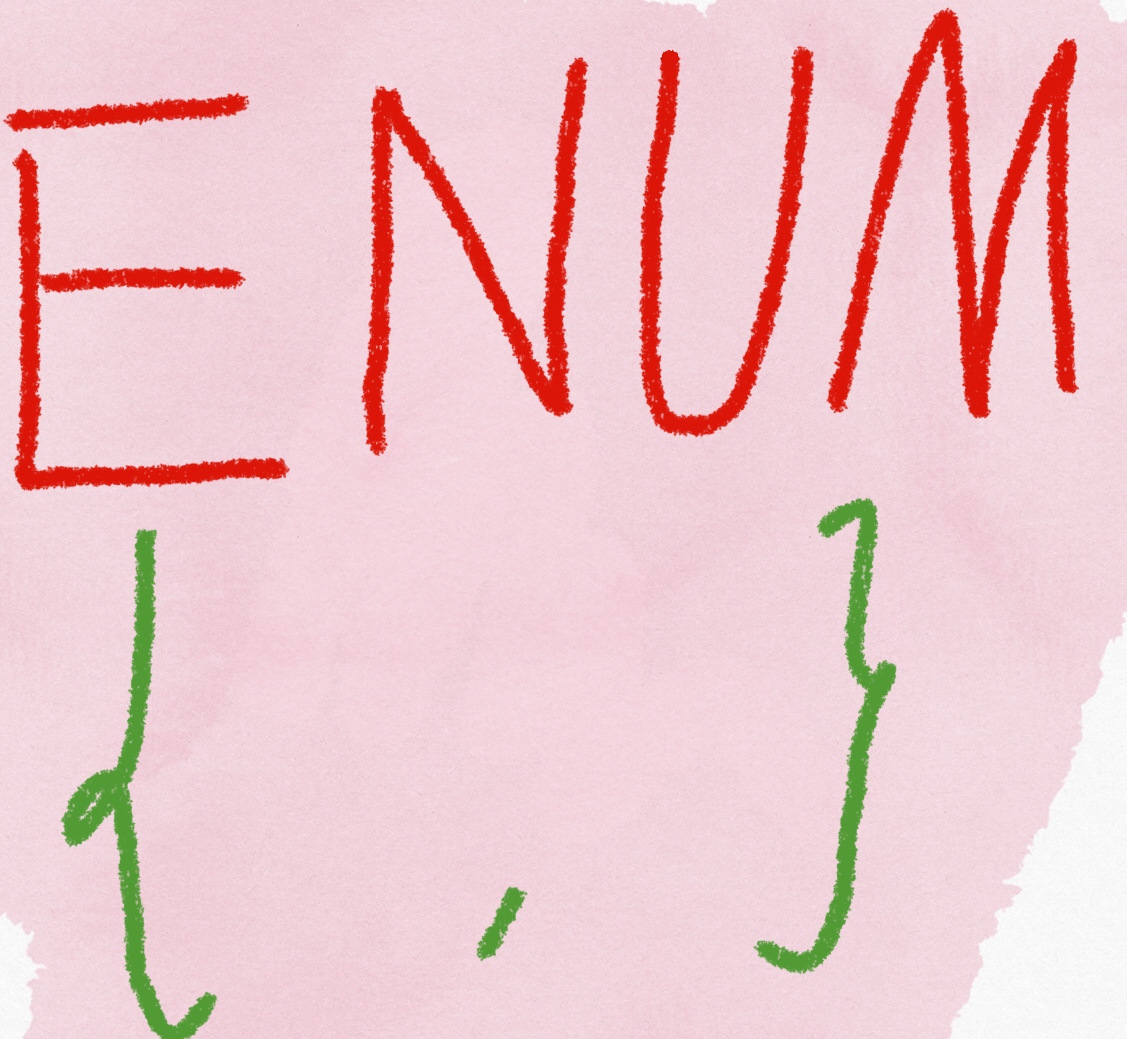 ENUM
{ , }